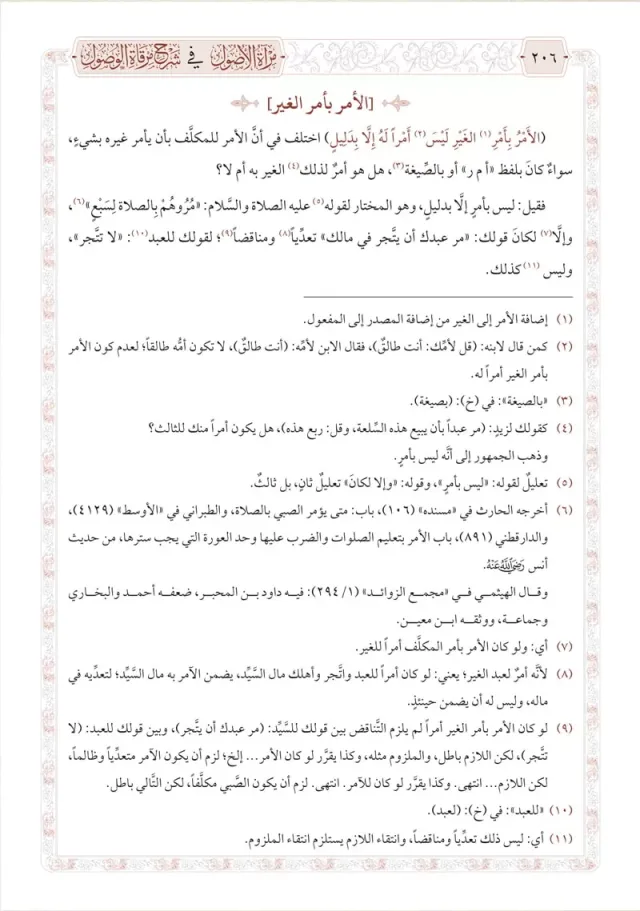 ٢٠٦
مرآة الأصول في شرح مرقاة الوصول
[الأمر بأمر الغير]
(الأَمْرُ بِأَمْرِ(١) الغَيْرِ لَيْسَ(٢) أَمْراً لَهُ إِلَّا بِدَلِيلٍ) اختلف في أنَّ الأمر للمكلَّف بأن يأمر غيره بشيءٍ،
سواءٌ كانَ بلفظ «أ م ر» أو بالصِّيغة(٣)، هل هو أمرٌ لذلك(٤) الغير به أم لا؟
فقيل: ليس بأمرٍ إلَّا بدليلٍ، وهو المختار لقوله(٥) عليه الصلاة والسَّلام: «مُرُوهُمْ بِالصلاة لِسَبْعٍ»(٦)،
وإلَّا(٧) لكانَ قولك: «مر عبدك أن يتَّجر في مالك» تعدِّياً(٨) ومناقضاً(٩)؛ لقولك للعبد(١٠): «لا تتَّجر»،
وليس(١١) كذلك.
(١) إضافة الأمر إلى الغير من إضافة المصدر إلى المفعول.
(٢) كمن قال لابنه: (قل لأمِّك: أنت طالقٌ)، فقال الابن لأمِّه: (أنت طالقٌ)، لا تكون أمُّه طالقاً؛ لعدم كون الأمر
بأمر الغير أمراً له.
(٣) «بالصيغة»: في (خ): (بصيغة).
(٤) كقولك لزيدٍ: (مر عبداً بأن يبيع هذه السِّلعة، وقل: ربع هذه)، هل يكون أمراً منك للثالث؟
وذهب الجمهور إلى أنَّه ليس بأمرٍ.
(٥) تعليلٌ لقوله: «ليس بأمرٍ»، وقوله: «وإلا لكانَ» تعليلٌ ثانٍ، بل ثالثٌ.
(٦) أخرجه الحارث في «مسنده» (١٠٦)، باب: متى يؤمر الصبي بالصلاة، والطبراني في «الأوسط» (٤١٢٩)،
والدارقطني (٨٩١)، باب الأمر بتعليم الصلوات والضرب عليها وحد العورة التي يجب سترها، من حديث
أنس رَضِيَ اللَّهُ عَنْهُ.
وقال الهيثمي في «مجمع الزوائد» (١/ ٢٩٤): فيه داود بن المحبر، ضعفه أحمد والبخاري
وجماعة، ووثقه ابن معين.
(٧) أي: ولو كان الأمر بأمر المكلَّف أمراً للغير.
(٨) لأنَّه أمرٌ لعبد الغير؛ يعني: لو كان أمراً للعبد واتَّجر وأهلك مال السَّيِّد، يضمن الآمر به مال السَّيِّد؛ لتعدِّيه في
ماله، وليس له أن يضمن حينئذٍ.
(٩) لو كان الأمر بأمر الغير أمراً لم يلزم التَّناقض بين قولك للسَّيِّد: (مر عبدك أن يتَّجر)، وبين قولك للعبد: (لا
تتَّجر)، لكن اللازم باطل، والملزوم مثله، وكذا يقرَّر لو كان الأمر... إلخ؛ لزم أن يكون الآمر متعدِّياً وظالماً،
لكن اللازم... انتهى. وكذا يقرَّر لو كان للآمر. انتهى. لزم أن يكون الصَّبي مكلَّفاً، لكن التَّالي باطل.
(١٠) «للعبد»: في (خ): (لعبد).
(١١) أي: ليس ذلك تعدِّياً ومناقضاً، وانتفاء اللازم يستلزم انتفاء الملزوم.